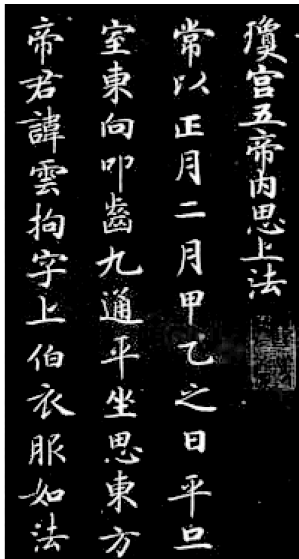 瓊宮五帝內思上法
常以正月二月甲乙之日平旦入
室東向叩齒九通平坐思東方
帝君諱雲拘字上伯衣服如法